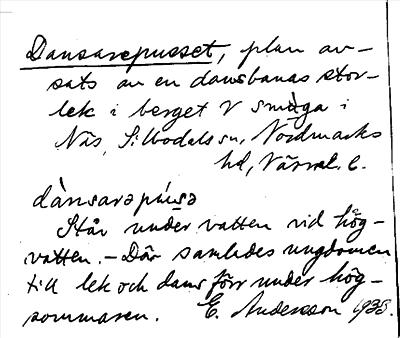 Dansarepusset, plan av-
sats av en dansbanas stor-
lek i berget V smuga i
Näs, Silbodals sn, Nordmarks
hd, Värml. l.
dànsarəpúsə
Står under vatten vid hög-
vatten. – Där samlades ungdomen
till lek och dans förr under hög-
sommaren. E. Andersson 1938.